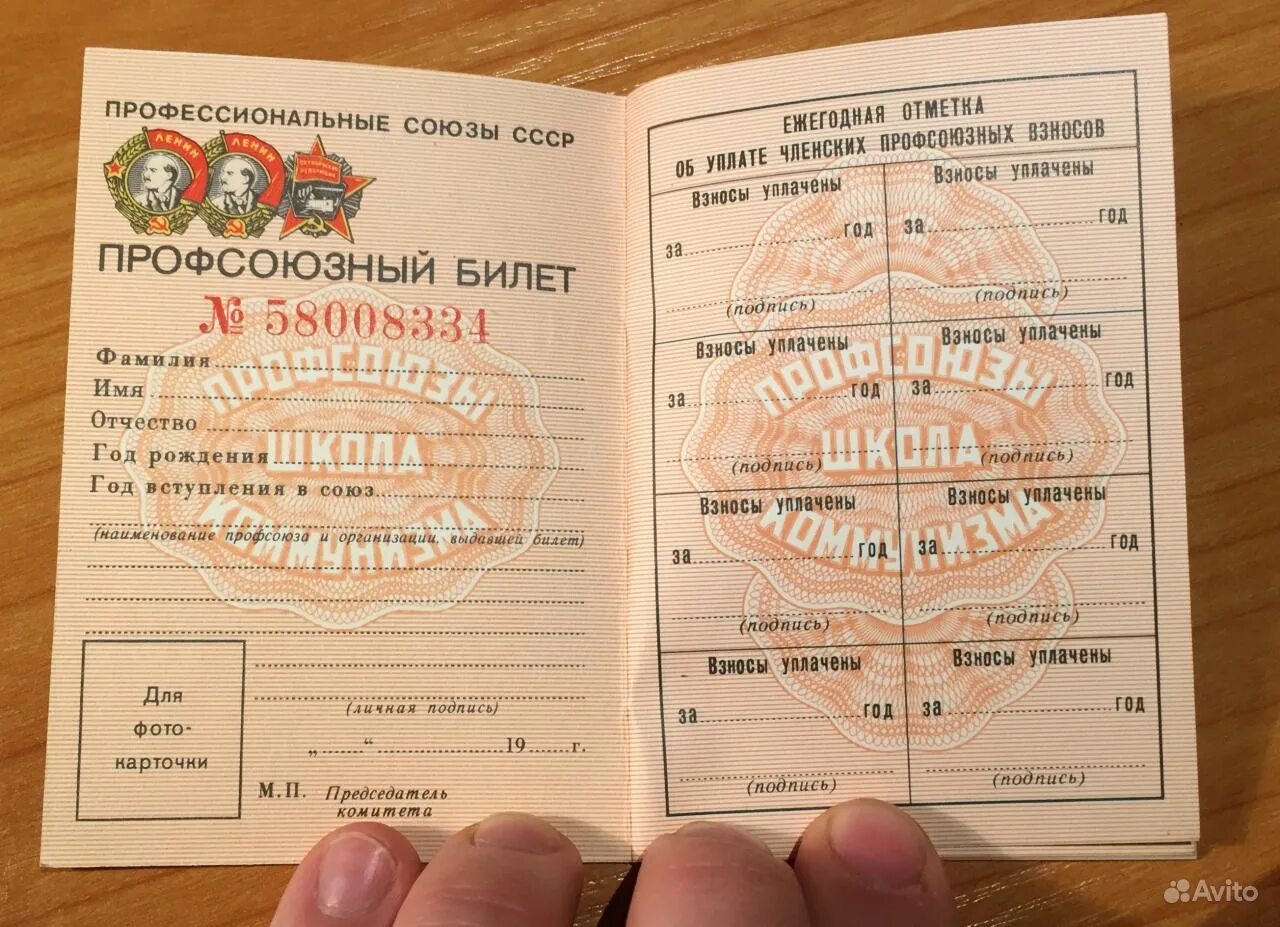 ПРОФЕССИОНАЛЬНЫЕ СОЮЗЫ СССР
ЛЕНИН ЛЕНИН
ПРОФСОЮЗНЫЙ БИЛЕТ
№ 58008334
Фамилия
Имя
Отчество
Год рождения
Год вступления в союз
(наименование профсоюза и организации, выдавшей билет)
ПРОФСОЮЗЫ
ШКОЛА
КОММУНИЗМА
Для
фото-
карточки
(личная подпись)
„......“ ................ 19 ...... г.
М.П. Председатель
комитета
ЕЖЕГОДНАЯ ОТМЕТКА
ОБ УПЛАТЕ ЧЛЕНСКИХ ПРОФСОЮЗНЫХ ВЗНОСОВ
Взносы уплачены Взносы уплачены
за год за год
(подпись) (подпись)
Взносы уплачены Взносы уплачены
за год за год
(подпись) (подпись)
Взносы уплачены Взносы уплачены
за год за год
(подпись) (подпись)
Взносы уплачены Взносы уплачены
за год за год
(подпись) (подпись)
ПРОФСОЮЗЫ
ШКОЛА
КОММУНИЗМА
Avito